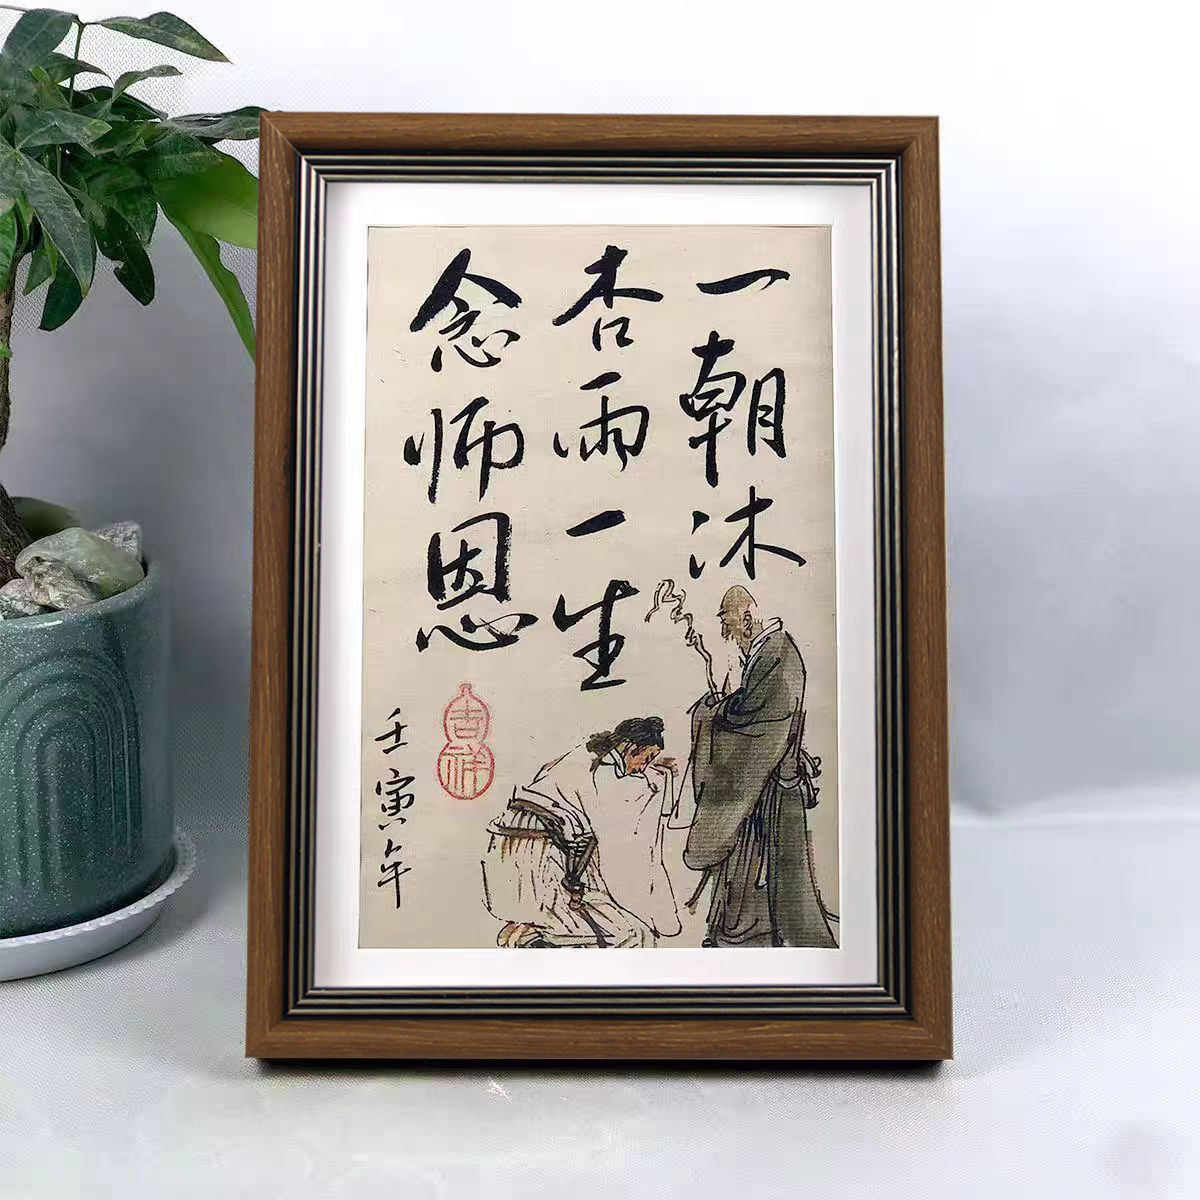 一朝沐
杏雨一生
念师恩
壬寅年
吉祥